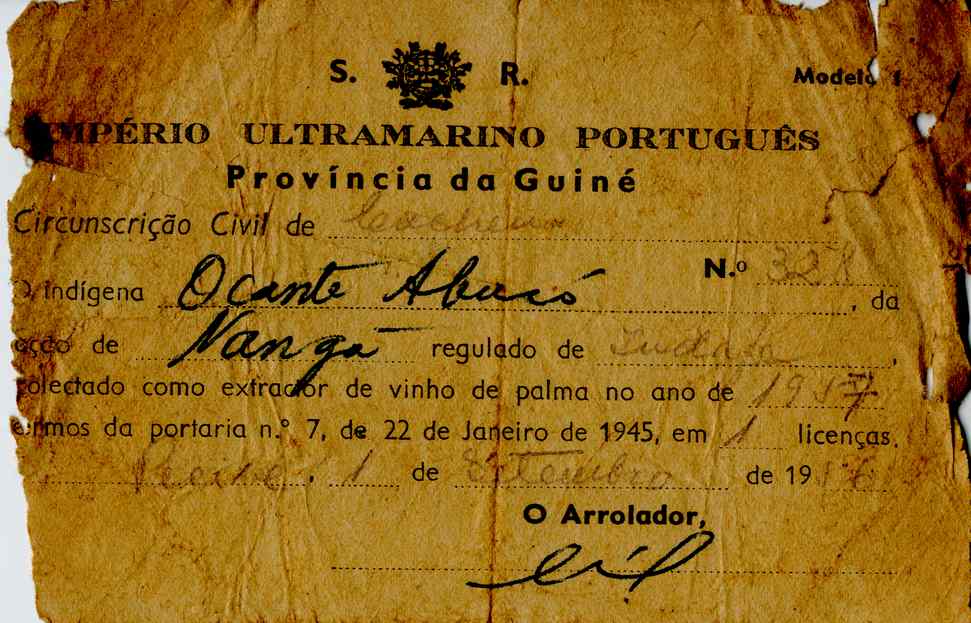 S. R.
Modelo 1
IMPÉRIO ULTRAMARINO PORTUGUÊS
Província da Guiné
Circunscrição Civil de
N.º 328
O indígena Ocante Abucó, da
de Nanga regulado de
colectado como extractor de vinho de palma no ano de 1957
termos da portaria n.º 7, de 22 de Janeiro de 1945, em 1 licenças.
1 de Setembro de 1956
O Arrolador,